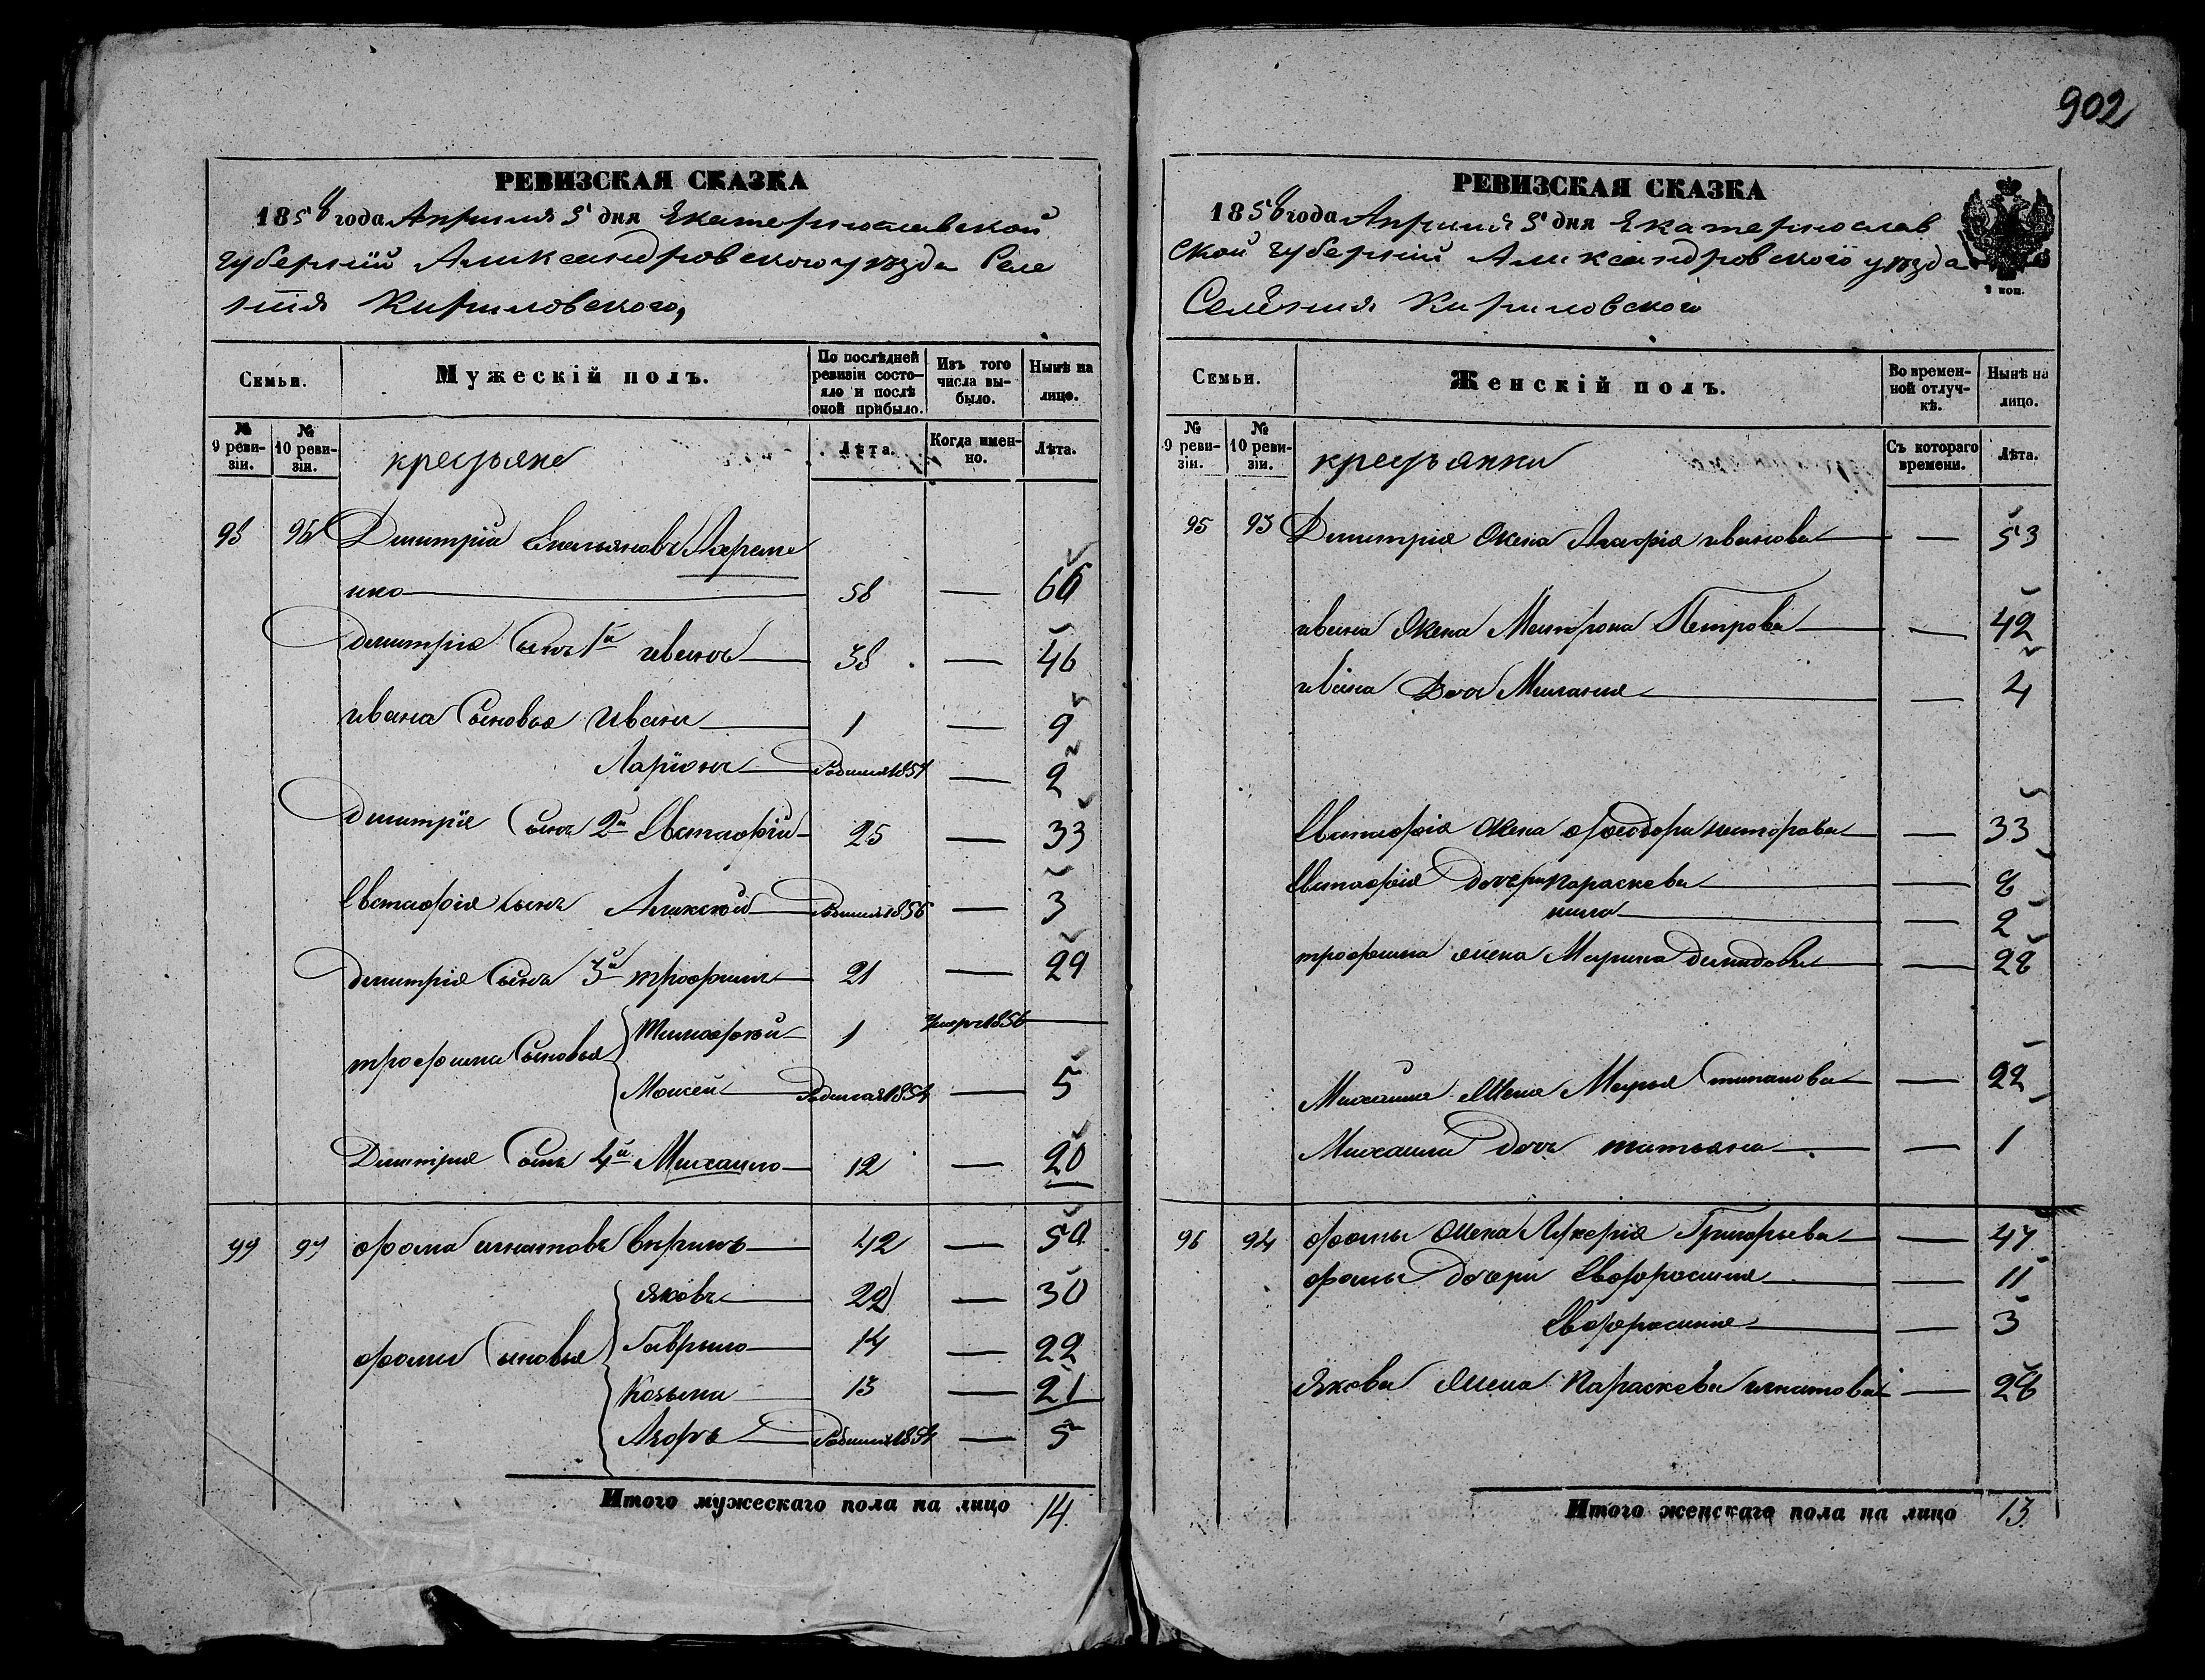 902
РЕВИЗСКАЯ СКАЗКА
1858 года Априля 5 дня Екатеринославской
губерніи Аликсандровского уѣзда Селе
нія Кириловского,
Семьи.
Мужескій полъ.
По послѣдней ревизіи состояло и послѣ оной прибыло.
Изъ того числа выбыло.
Нынѣ на лицо.
№ 9 ревизіи.
№ 10 ревизіи.
крестьяне
Лѣта.
Когда именно.
Лѣта.
Димитрій Емельяновъ
нко 58 — 66
димитрія Сынъ 1й иванъ 38 — 46
ивана Сыновья Иванъ 1 — 9
Ларіонъ Родился 1857 — 2
димитрія Сынъ 2й Евстафій 25 — 33
Евстафія сынъ Аликсѣй Родился 1856 — 3
димитрія Сынъ 3й трофимъ 21 — 29
трофима Сыновья Тимофѣй 1 Умеръ 1856
Моисей Родился 1854 — 5
Димитрия Сынъ 4й Михаило 12 — 20
99 97 фома игнатовъ 42 — 50
яковъ 22 — 30
фомы Сыновья Гаврыло 14 — 22
Козьма 13 — 21
Родился 1854 — 5
Итого мужескаго пола на лицо 14
РЕВИЗСКАЯ СКАЗКА
1858 года Априля 5 дня Екатеринослав
ской губерніи Аликсандровского уѣзда
Селенія Кириловского
3 коп.
Семьи.
Женскій полъ.
Во временной отлучкѣ.
Нынѣ на лицо.
№ 9 ревизіи.
№ 10 ревизіи.
крестьянки
Съ котораго времени.
Лѣта.
95 93 Димитрія Жена Агафія иванова — 53
ивана Жена Матрона Петрова — 42
ивана Дочь Миланія — 4
Евстафія Жена феодора — 33
Евстафія Дочери Параскева — 8
— 2
трофима жена Марина демидова — 28
Михаила Жена Марья Стипанова — 22
Михаила Дочь татьяна — 1
96 94 фомы жена Лукерія Григорьева — 47
фомы Дочери Евфросиния — 11
Евфросиния — 3
Якова Жена Параскева игнатова — 28
Итого женскаго пола на лицо 13